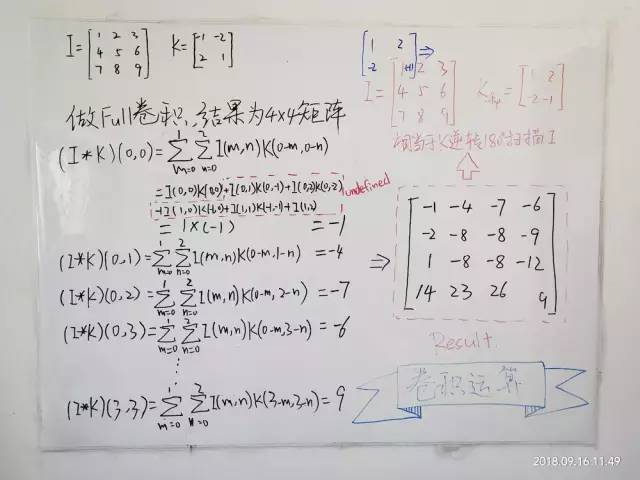 I = [1 2 3; 4 5 6; 7 8 9] K = [-1 -2; 2 1]
做Full卷积,结果为4×4矩阵
(I*K)(0,0) = ∑_{m=0}^{1} ∑_{n=0}^{2} I(m,n)K(0-m,0-n)
= I(0,0)K(0,0) + I(0,1)K(0,-1) + I(0,2)K(0,-2)
undefined
+ I(1,0)K(-1,0) + I(1,1)K(-1,-1) + I(1,2)
= 1×(-1) = -1
(I*K)(0,1) = ∑_{m=0}^{1} ∑_{n=0}^{2} I(m,n)K(0-m,1-n) = -4
(I*K)(0,2) = ∑_{m=0}^{1} ∑_{n=0}^{2} I(m,n)K(0-m,2-n) = -7
(I*K)(0,3) = ∑_{m=0}^{1} ∑_{n=0}^{2} I(m,n)K(0-m,3-n) = -6
⋮
(I*K)(3,3) = ∑_{m=0}^{1} ∑_{n=0}^{2} I(m,n)K(3-m,3-n) = 9
[1 2; -2 -1] ⇒
I = [1 2 3; 4 5 6; 7 8 9] K = [1 2; -2 -1]
相当于K逆转180°扫描I
⇒
-1 -4 -7 -6
-2 -8 -8 -9
1 -8 -8 -12
14 23 26 9
Result
卷积运算
2018.09.16 11:49